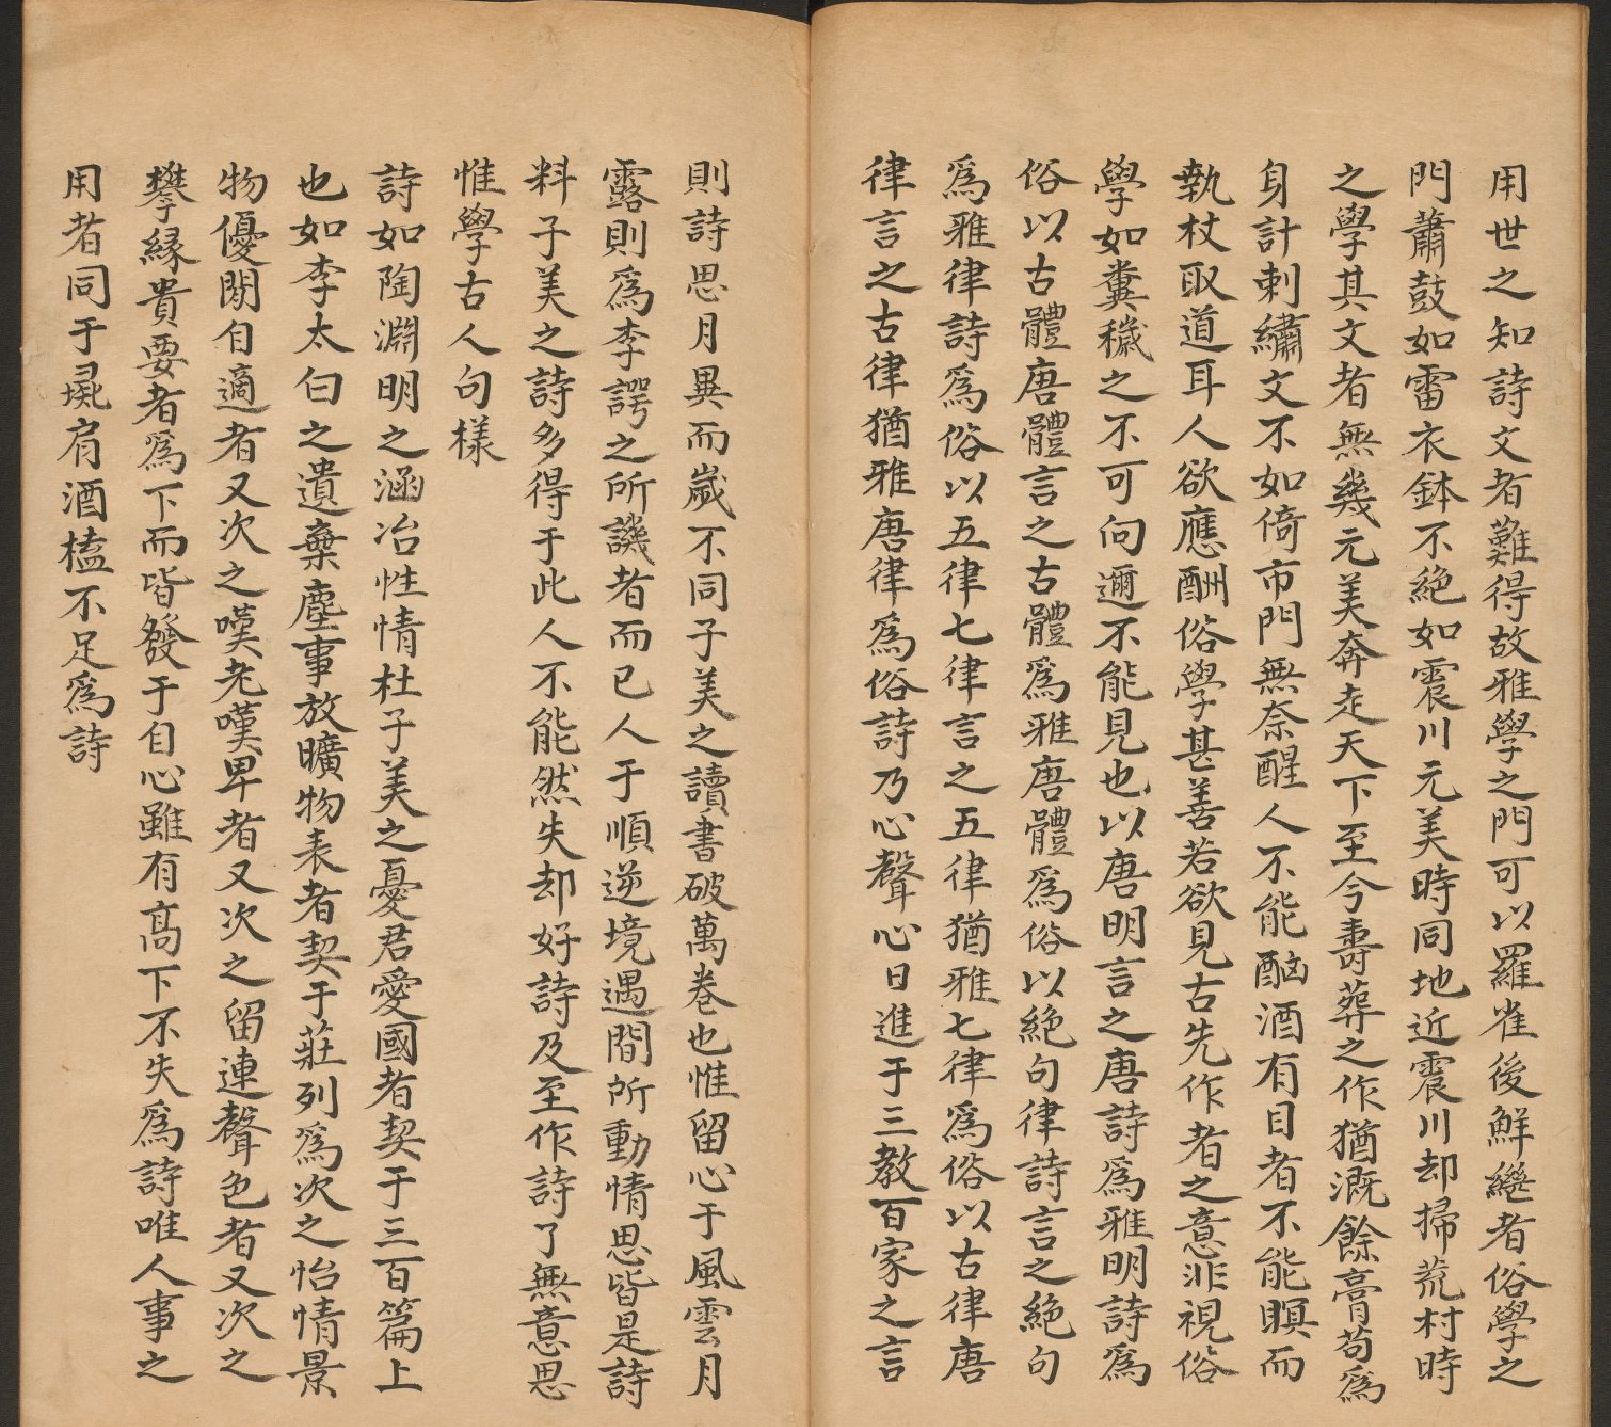 用世之知詩文者難得故雅學之門可以羅雀後鮮繼者俗學之
門蕭鼓如雷衣鉢不絕如震川元美時同地近震川却掃荒村時
之學其文者無幾元美奔走天下至今壽葬之作猶溉餘膏苟爲
身計刺繡文不如倚市門無奈醒人不能酗酒有目者不能瞑而
執杖取道耳人欲應酬俗學甚善若欲見古先作者之意非視俗
學如糞穢之不可向邇不能見也以唐明言之唐詩爲雅明詩爲
俗以古體唐體言之古體爲雅唐體爲俗以絕句律詩言之絕句
爲雅律詩爲俗以五律七律言之五律猶雅七律爲俗以古律唐
律言之古律猶雅唐律爲俗詩乃心聲心日進于三教百家之言
則詩思月異而歲不同子美之讀書破萬卷也惟留心于風雲月
露則爲李諤之所譏者而已人于順逆境遇間所動情思皆是詩
料子美之詩多得于此人不能然失却好詩及至作詩了無意思
惟學古人句樣
詩如陶淵明之涵冶性情杜子美之憂君愛國者契于三百篇上
也如李太白之遺棄塵事放曠物表者契于莊列爲次之怡情景
物優閒自適者又次之嘆老嘆卑者又次之留連聲色者又次之
攀緣貴要者爲下而皆發于自心雖有高下不失爲詩唯人事之
用者同于彘肩酒榼不足爲詩